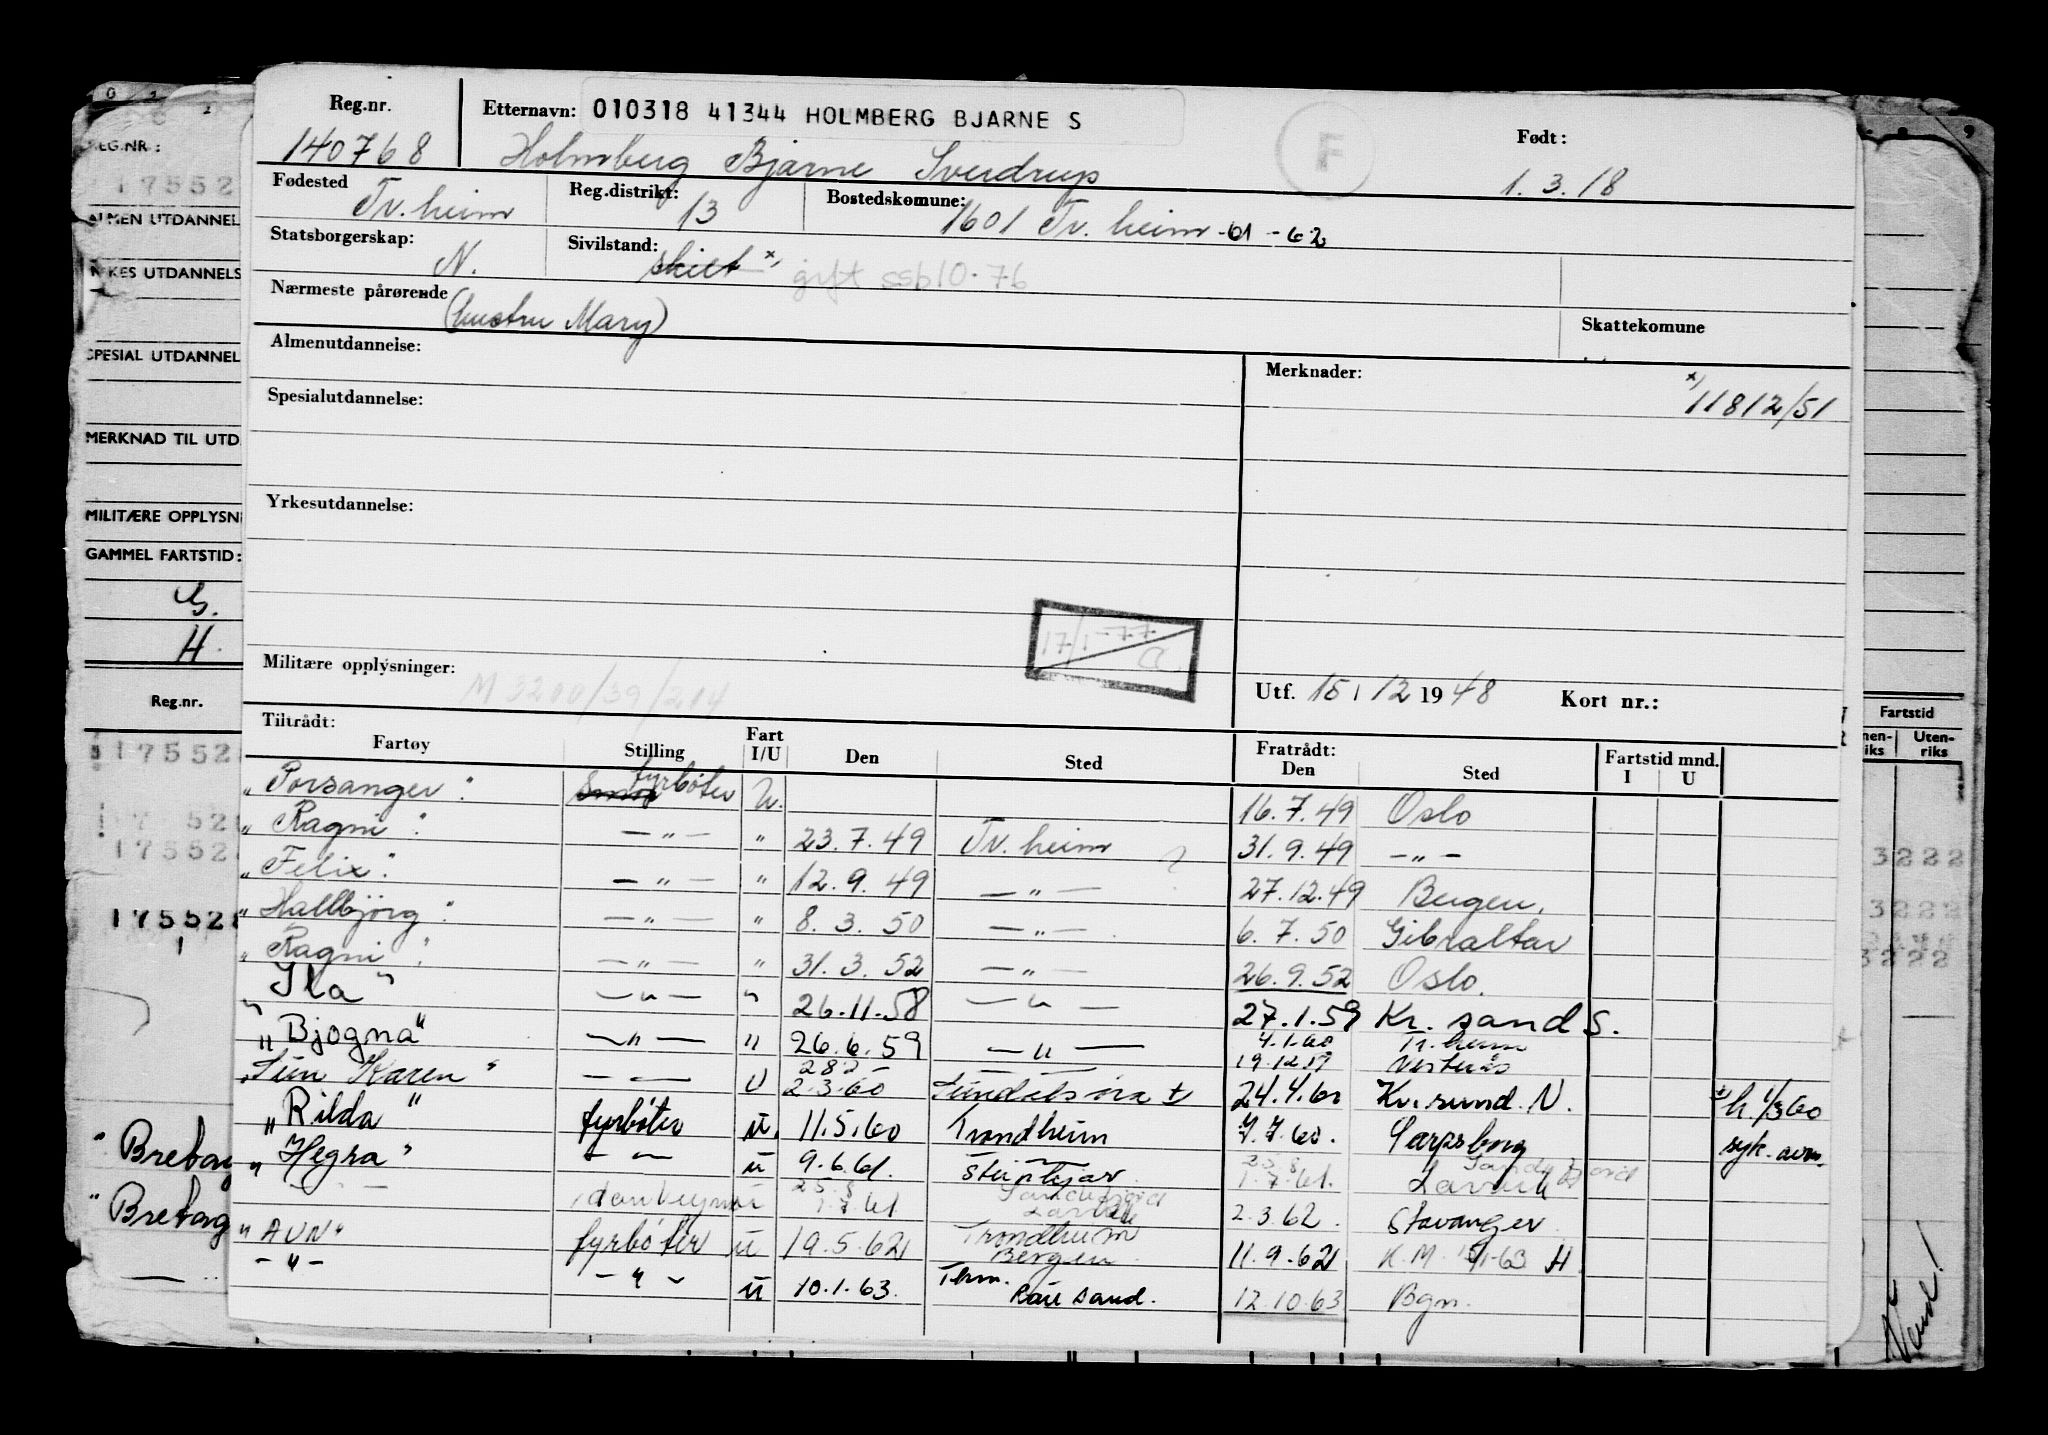 Reg.nr. Etternavn: 010318 41344 HOLMBERG BJARNE S Født:
140768 Holmberg Bjarne Sverdrup 1. 3. 18
Fødested Reg.distrikt: Bostedskomune:
Tr.heim 13 1601 Tr.heim -61 -62
Statsborgerskap: Sivilstand:
N. skilt x) gift ssb 10-76
Nærmeste pårørende (hustru Mary)
Skattekomune
Almenutdannelse: Merknader:
x) 11812/51
Spesialutdannelse:
Yrkesutdannelse:
17/1-77
Militære opplysninger: M 3200/39/214
Utf. 15/12 1948 Kort nr.:
Tiltrådt: Fratrådt: Fartstid mnd.
Fartøy Stilling Fart I/U Den Sted Den Sted I U
"Porsanger" fyrbøter U. 16.7.49 Oslo
"Ragni" — " — " 23.7.49 Tr.heim 31.9.49 — " —
"Felix" — " — " 12.9.49 — " — 27.12.49 Bergen.
"Hallbjörg" — " — " 8.3.50 — " — 6.7.50 Gibraltar
"Ragni" — " — " 31.3.52 — " — 26.9.52 Oslo.
"Ila" — " — " 26.11.58 — " — 27.1.59 Kr.sand S.
4.1.60 Tr.heim
"Bjogna" — " — " 26.6.59 — " — 19.12.19
Karen" — — U 2.3.60 24.4.60 Kr.sund. N. h. 1/3 60
"Rilda" fyrbøter U. 11.5.60 Trondheim 7.7.60. Sarpsborg syk. avm.
"Hegra" — — U 9.6.61. Steinkjær 1.7.61. Larvik
25.8 Sandefjord
1.7.61. Larvik 2.3.62. Stavanger
"AUN" fyrbøter U 19.5.62 Trondheim Bergen 11.9.62 K.M. H
— " — — " — U 10.1.63. Thm. 12.10.63 Bgn.
REG.NR.:
17552
ALMEN UTDANNEL
YRKES UTDANNELS
SPESIAL UTDANNEL
MERKNAD TIL UTD
MILITÆRE OPPLYSNI
GAMMEL FARTSTID:
G.
H.
Reg.nr.
17552
17552
17552
"Bretag
"Bretag
Fartstid
Uten-
riks
3222
3222
3222
Vend!